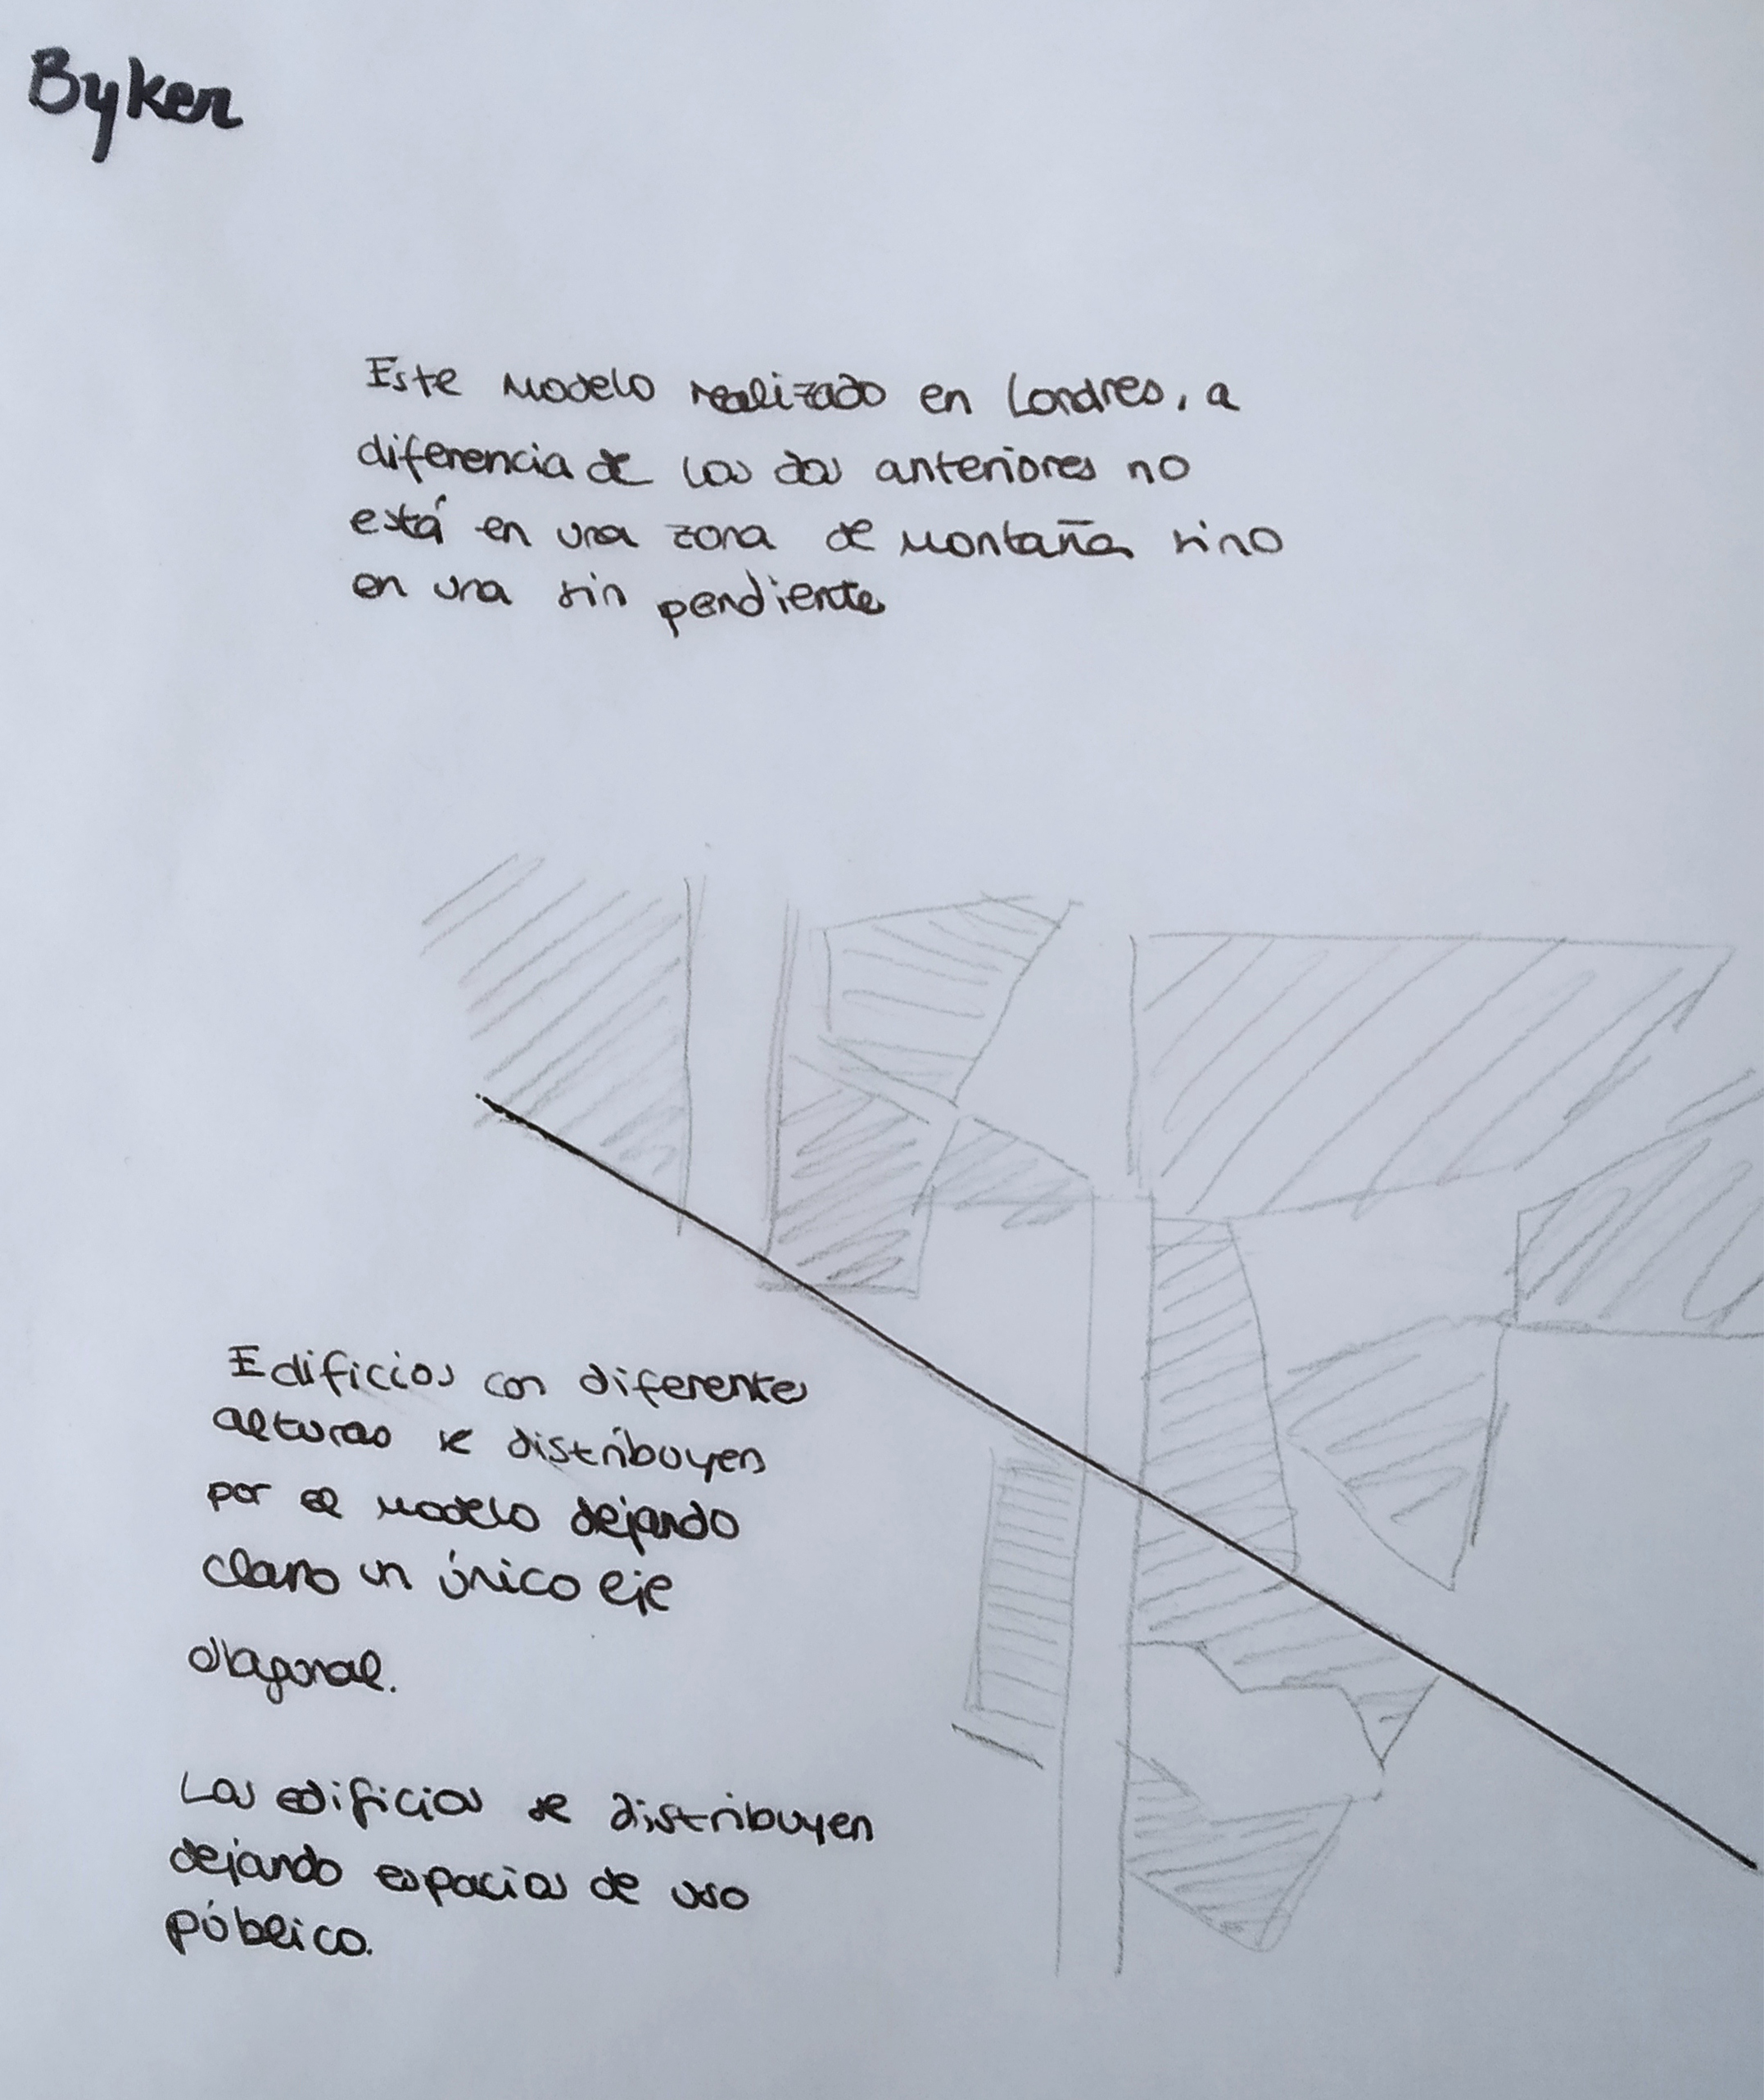 Byker
Este modelo realizado en Londres, a
diferencia de los dos anteriores no
está en una zona de montaña sino
en una sin pendiente
Edificios con diferentes
alturas se distribuyen
por el modelo dejando
claro un único eje
diagonal.
Los edificios se distribuyen
dejando espacios de uso
público.